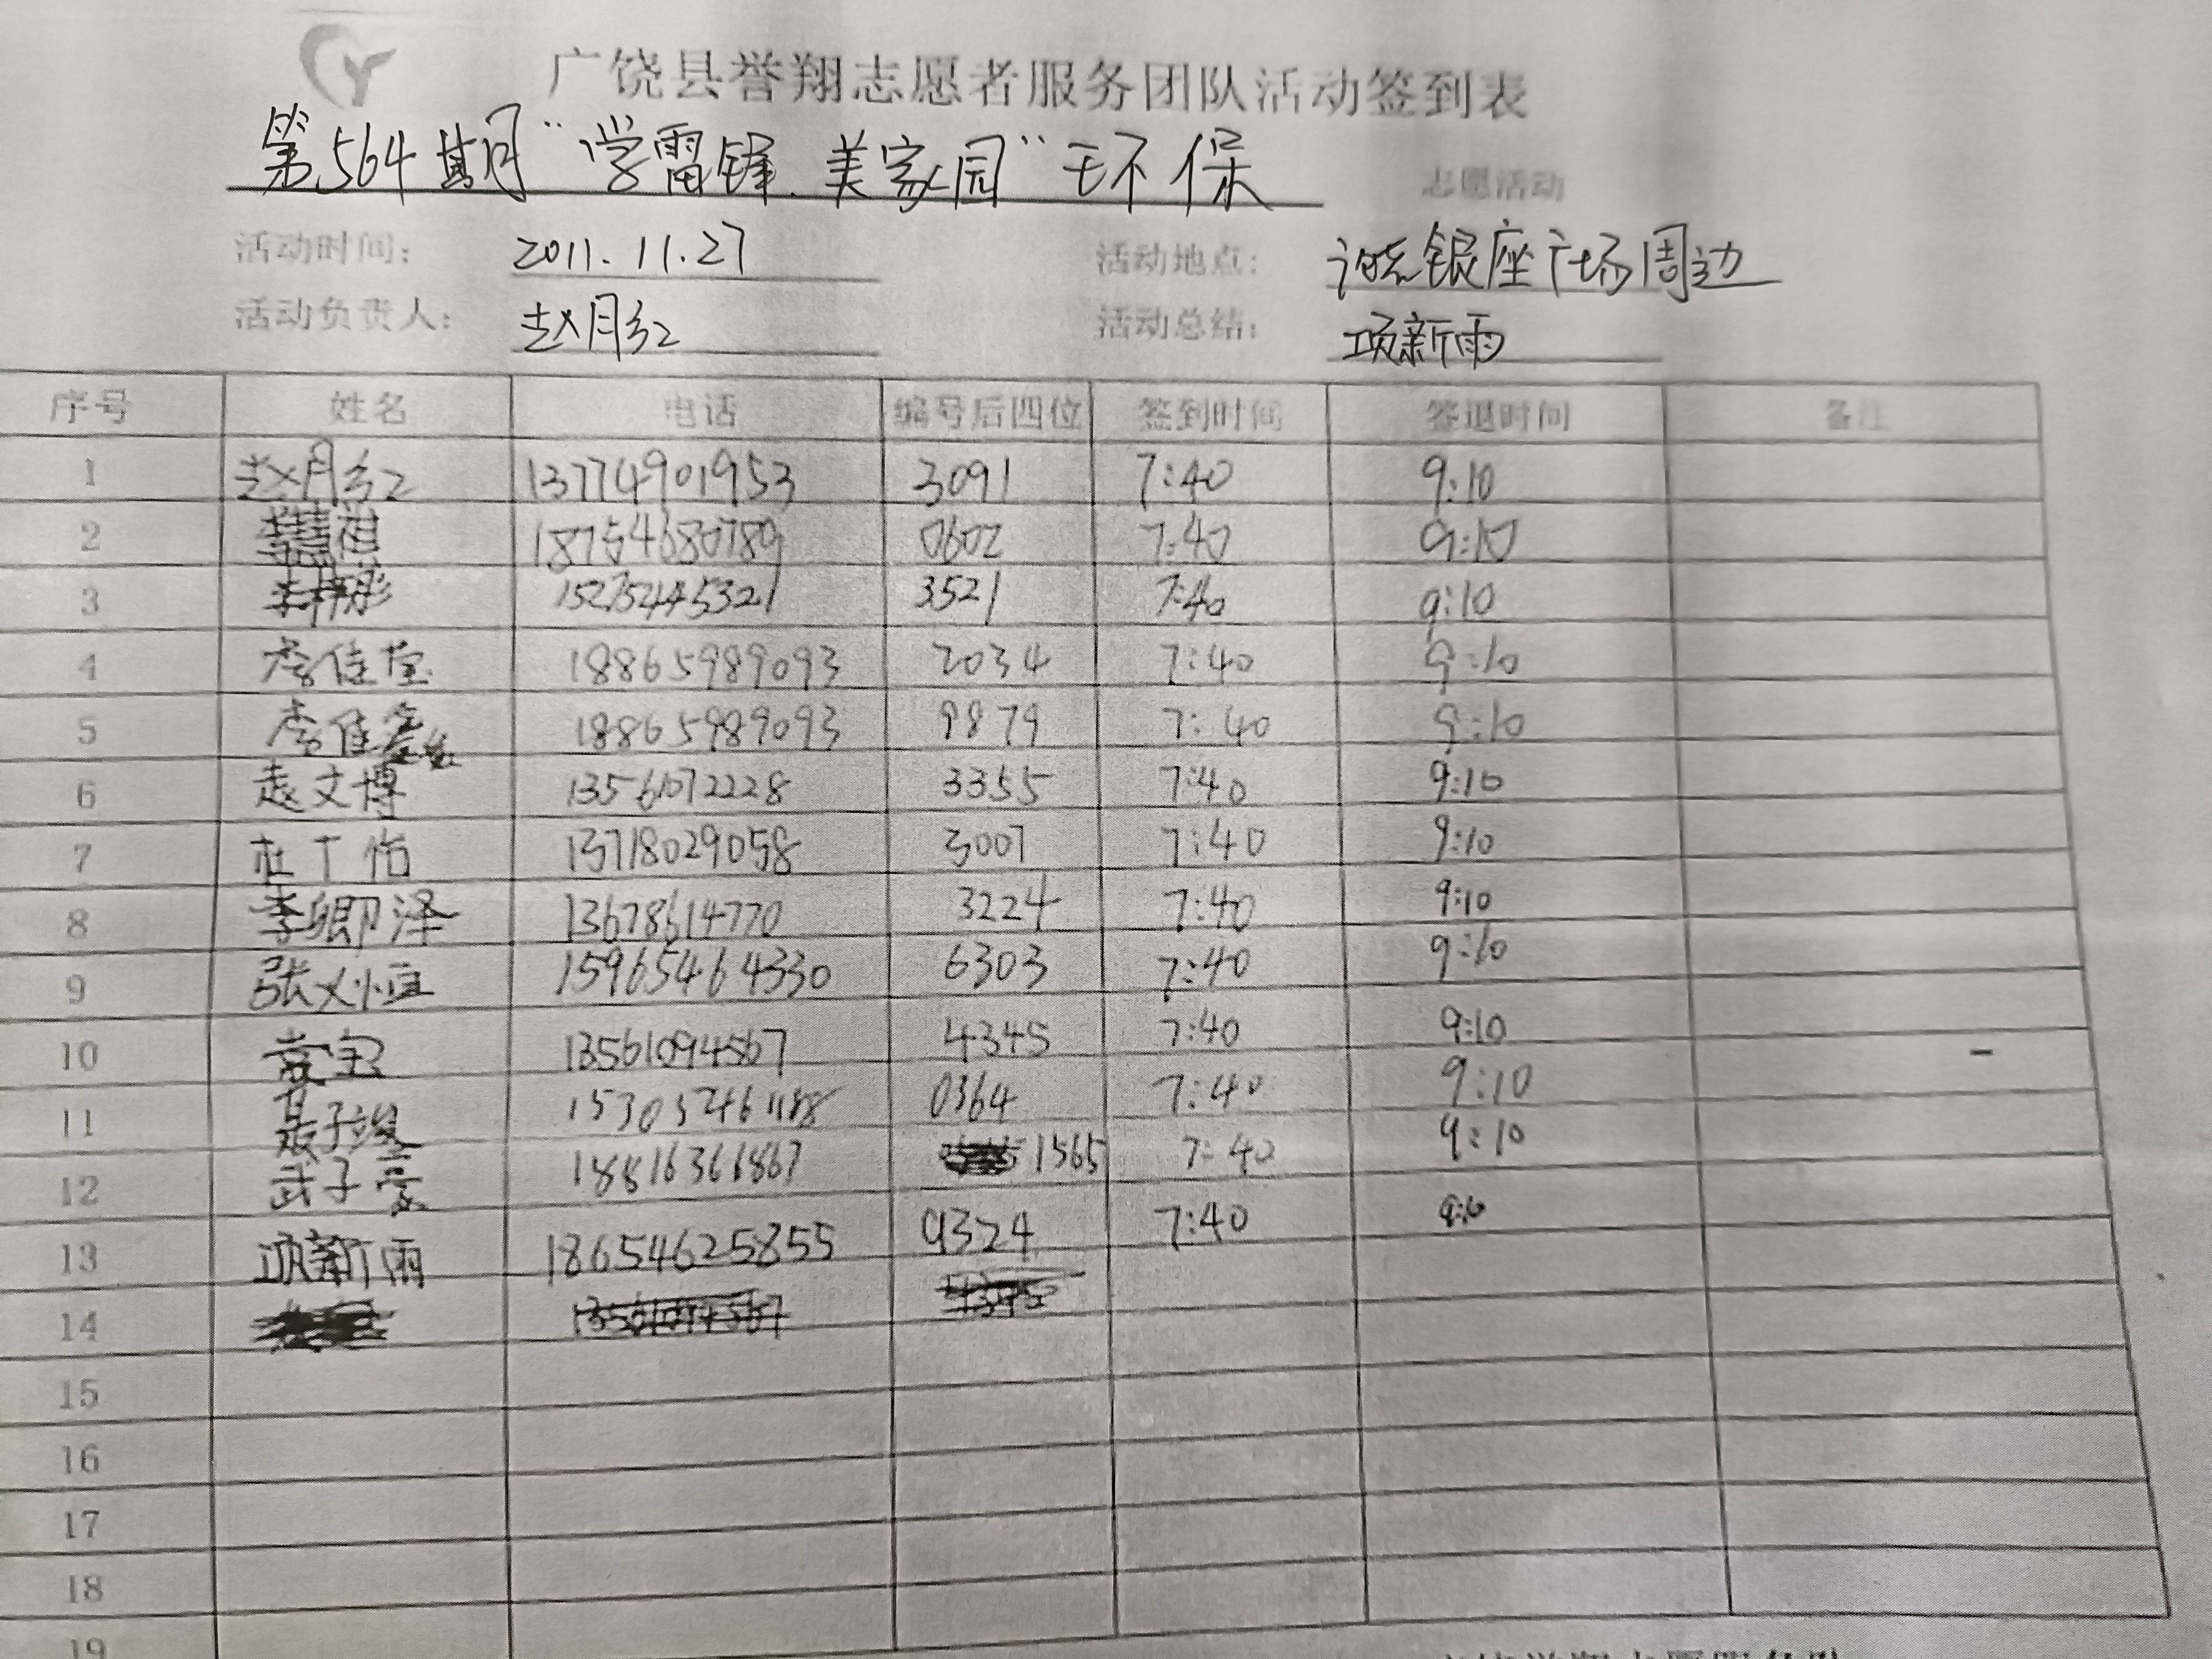 广饶县誉翔志愿者服务团队活动签到表
第564期“学雷锋、美家园”环保 志愿活动
活动时间: 2011.11.27 活动地点: 银座广场周边
活动负责人: 赵月红 活动总结: 项新雨
序号 姓名 电话 编号后四位 签到时间 签退时间 备注
1 赵月红 13774901953 3091 7:40 9:10
2 18754680789 0602 7:40 9:10
3 15275445321 3521 7:40 9:10
4 李佳莹 18865989093 2034 7:40 9:10
5 李佳 18865989093 9879 7:40 9:10
6 袁文博 13561072228 3355 7:40 9:10
7 杜丁怡 13718029058 3007 7:40 9:10
8 李卿泽 13678614770 3224 7:40 9:10
9 张文恒 15965464330 6303 7:40 9:10
10 常宝 13561094567 4345 7:40 9:10
11 子竣 15305246188 0364 7:40 9:10
12 武子豪 18816361867 1565 7:40 9:10
13 项新雨 18654625855 9324 7:40
14
15
16
17
18
19